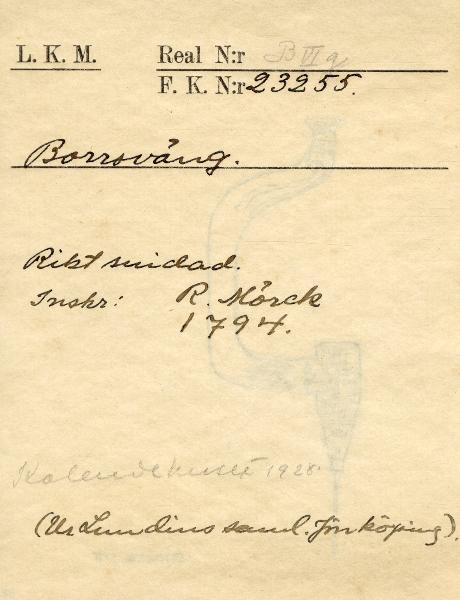 L. K. M. Real N:r B VI q
F. K. N:r 23255.
Borrsväng.
Rikt snidad.
Inskr: R. Mörck
1794.
Kalendehuset 1928.
(Ur Lundins saml. Jönköping).